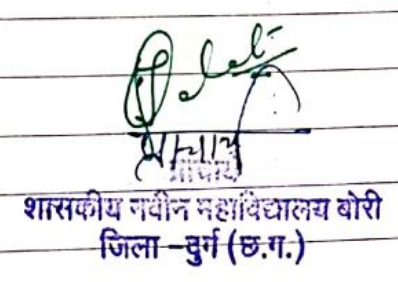 प्राचार्य
प्राचार्य
शासकीय नवीन महाविद्यालय बोरी
जिला -दुर्ग (छ.ग.)